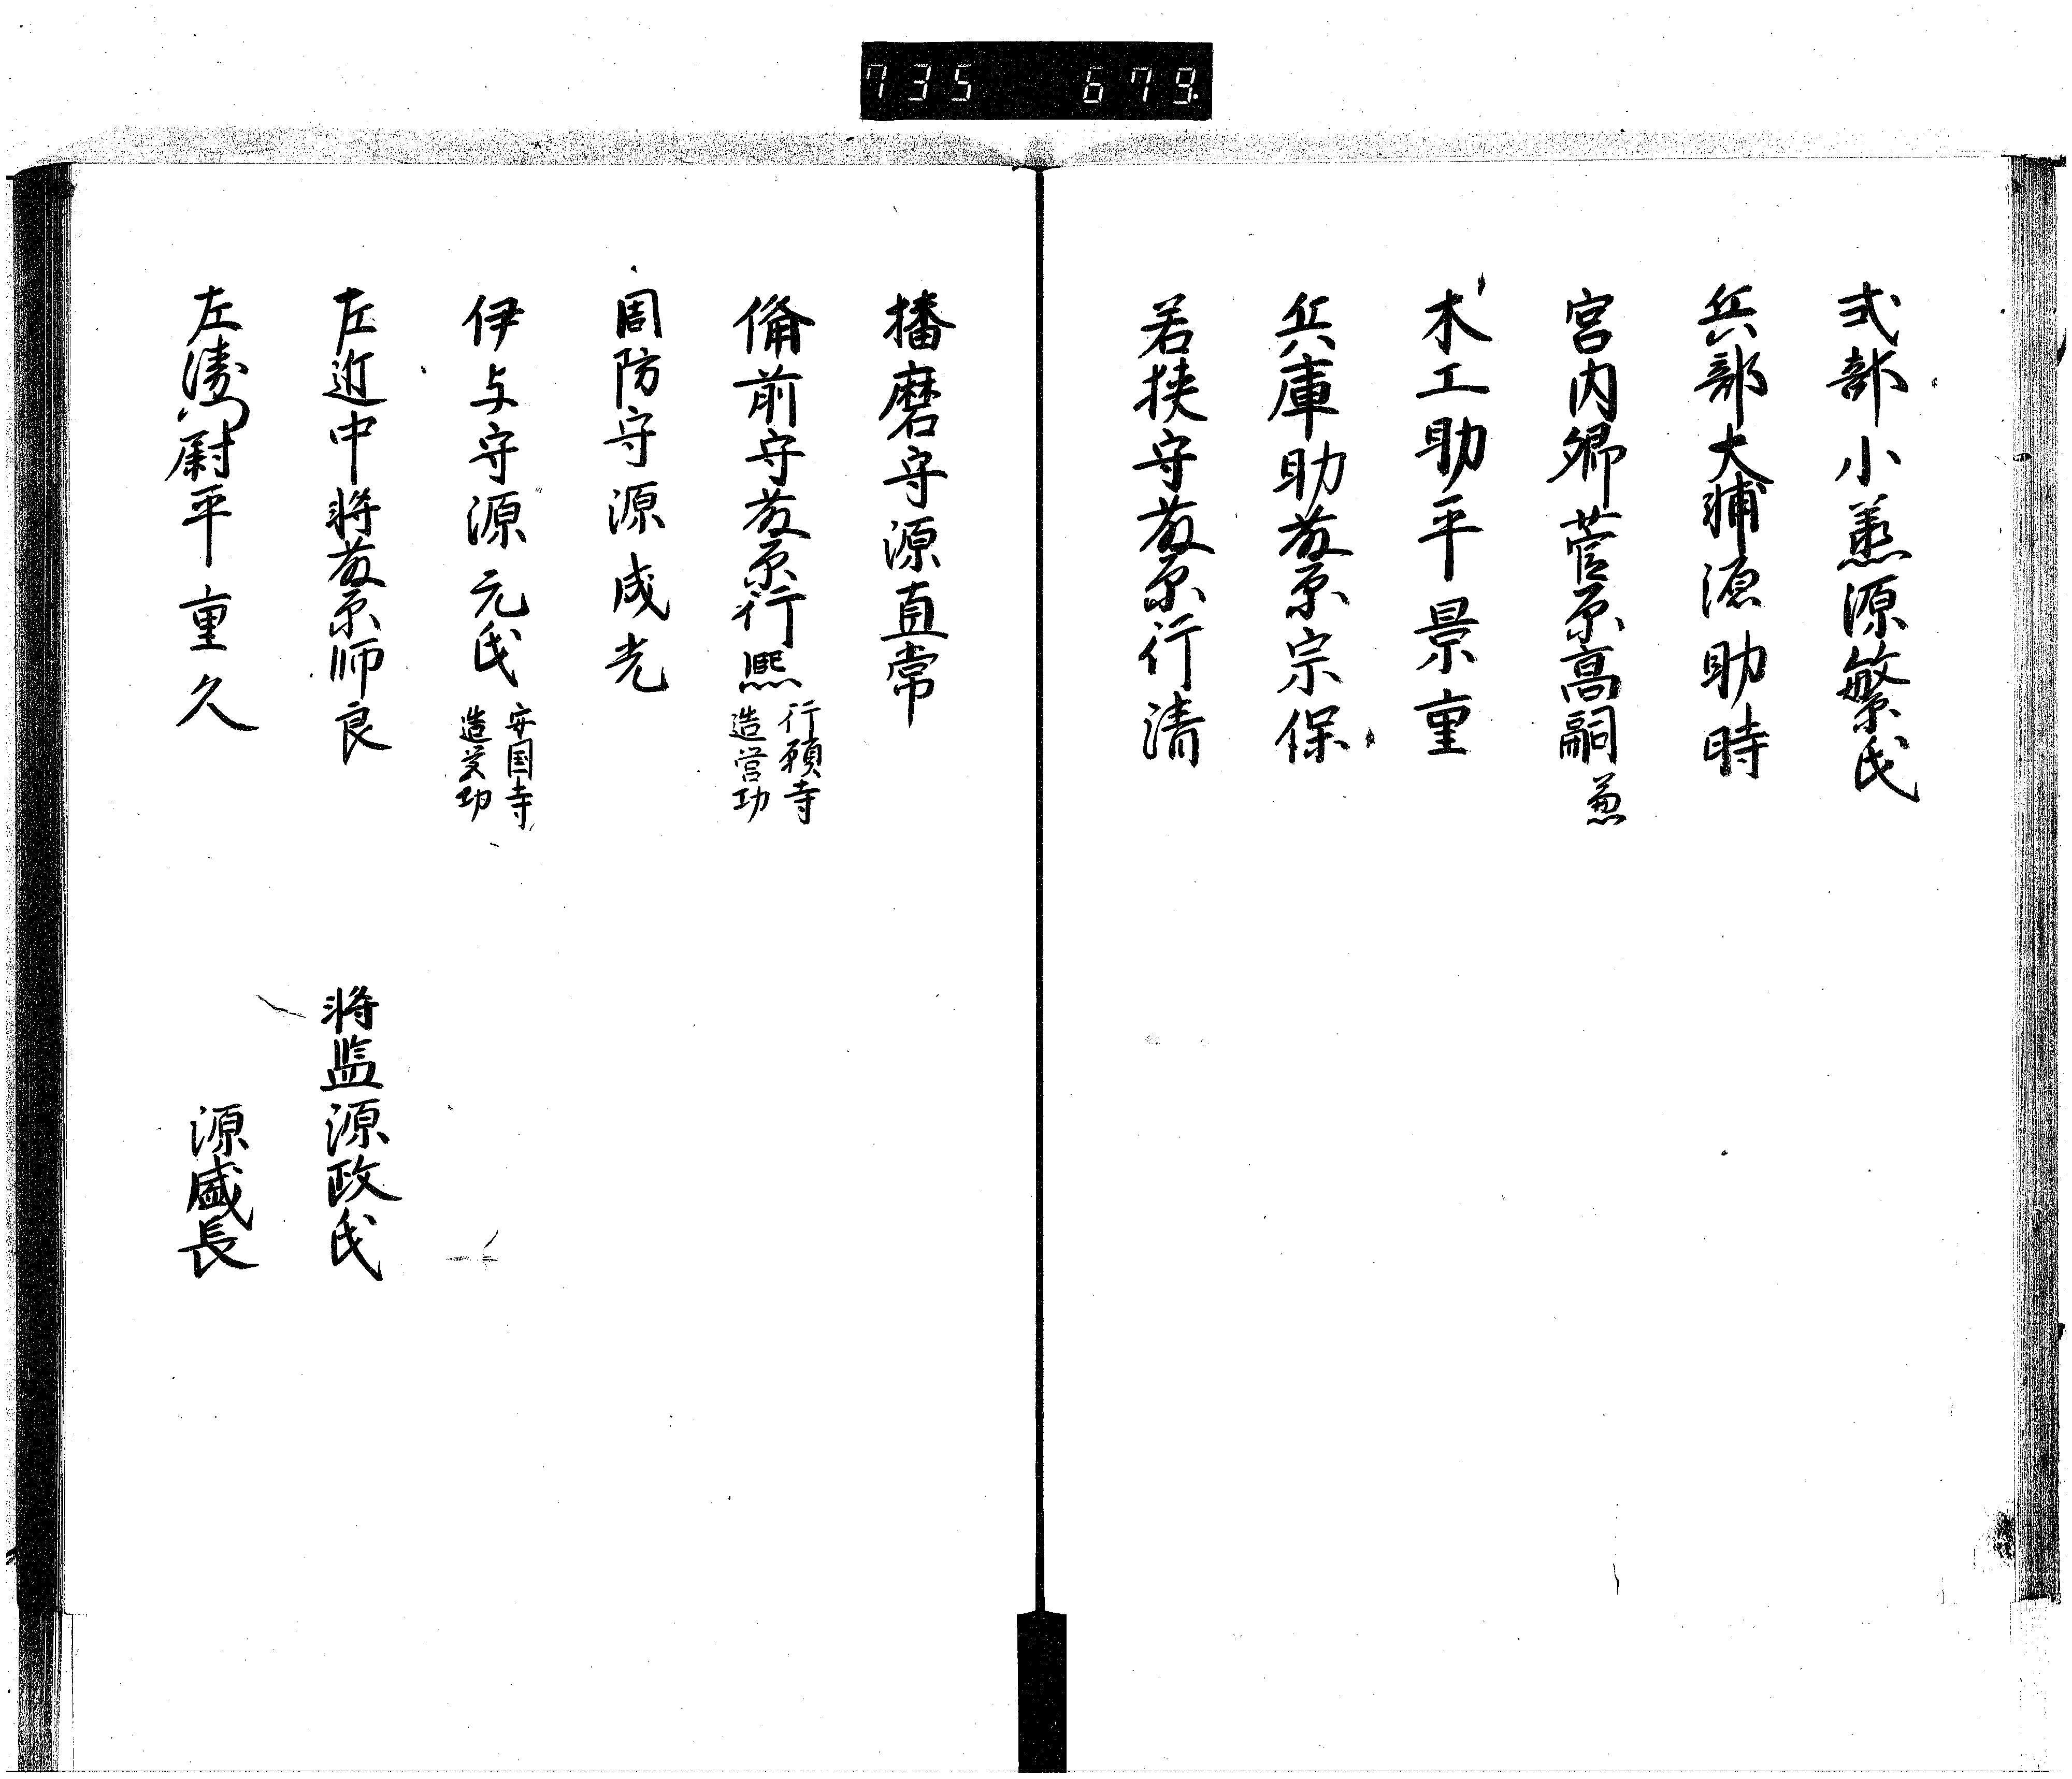 735 679
式部小丞源繁氏
兵部大輔源助時
宮内卿菅原高嗣 兼
木工助平景重
兵庫助藤原宗保
若狭守藤原行清
播磨守源直常
俻前守藤原行熈 行願寺
造営功
周防守源成光
伊与守源元氏 安国寺
造営功
左近中将藤原师良 将监源政氏
左衛門尉平重久 源盛長